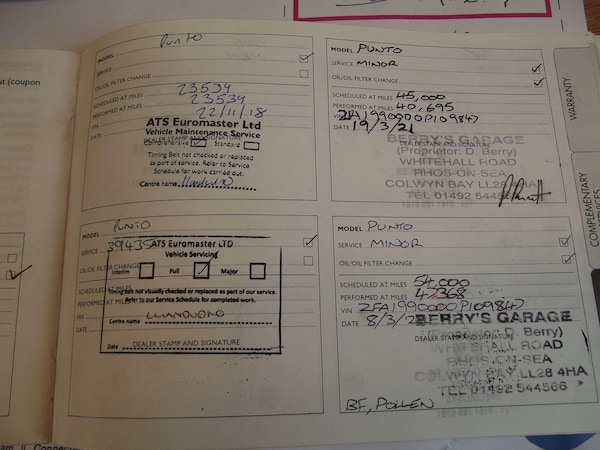 MODEL Punto
SERVICE
OIL/OIL FILTER CHANGE
SCHEDULED AT MILES 23539
PERFORMED AT MILES 23539
VIN 22/11/18
DATE
ATS Euromaster Ltd
Vehicle Maintenance Service
DEALER STAMP AND SIGNATURE
Comprehensive Standard
Timing Belt not checked or replaced
as part of service. Refer to Service
Schedule for work carried out.
Centre name Llandudno
MODEL PUNTO
SERVICE MINOR
OIL/OIL FILTER CHANGE
SCHEDULED AT MILES 45,000
PERFORMED AT MILES 40,695
VIN ZFA1990000P109847
DATE 19/3/21
BERRY'S GARAGE
(Proprietor: D. Berry)
DEALER STAMP AND SIGNATURE
WHITEHALL ROAD
RHOS-ON-SEA
COLWYN BAY LL28 4HA
TEL 01492 544
MODEL PUNTO
SERVICE 39435
OIL/OIL FILTER CHANGE
SCHEDULED AT MILES
PERFORMED AT MILES
VIN
DATE
ATS Euromaster LTD
Vehicle Servicing
Interim Full Major
Timing belt not visually checked or replaced as part of our service.
Refer to our Service Schedule for completed work.
Centre name LLANDUDNO
Date
DEALER STAMP AND SIGNATURE
MODEL PUNTO
SERVICE MINOR
OIL/OIL FILTER CHANGE
SCHEDULED AT MILES 54,000
PERFORMED AT MILES 42368
VIN ZFA1990000P109847
DATE 8/3/2
BERRY'S GARAGE
(Proprietor: D. Berry)
DEALER STAMP AND SIGNATURE
WHITEHALL ROAD
RHOS-ON-SEA
COLWYN BAY LL28 4HA
TEL 01492 544566
BF, POLLEN
WARRANTY
COMPLEMENTARY
SERVICES
ut (coupon